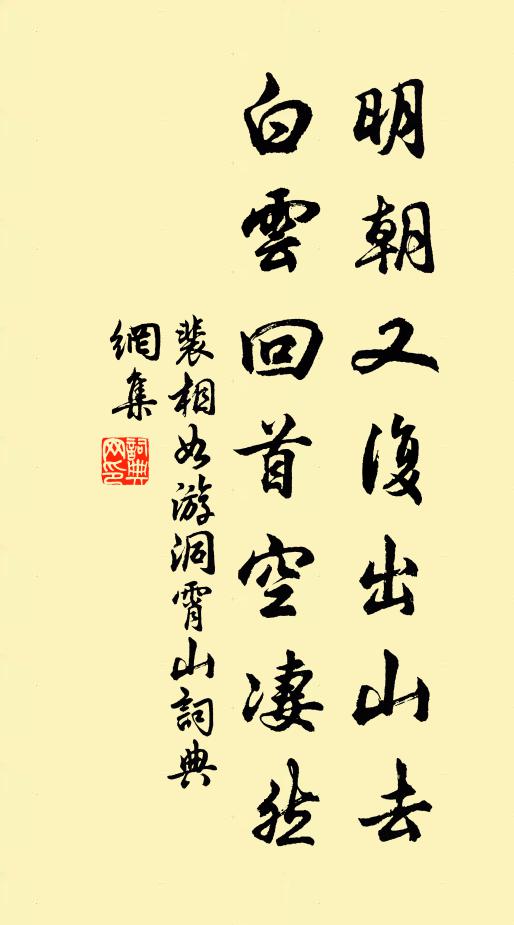 明朝又復出山去
白雲回首空凄然
裴相如游洞霄山詞典
網集
詞典網印